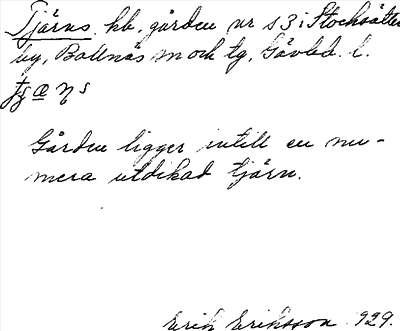 Tjärns, hb, gården nr s 3 i Stocksätter
by, Bollnäs sn och tg, Gävleb. l.
Gården ligger intill en nu-
mera utdikad tjärn.
Erik Eriksson 1929.